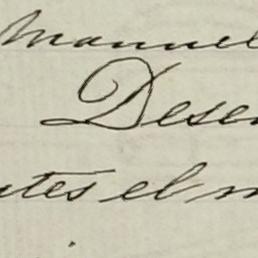 Manuel
Desen
ntes el m